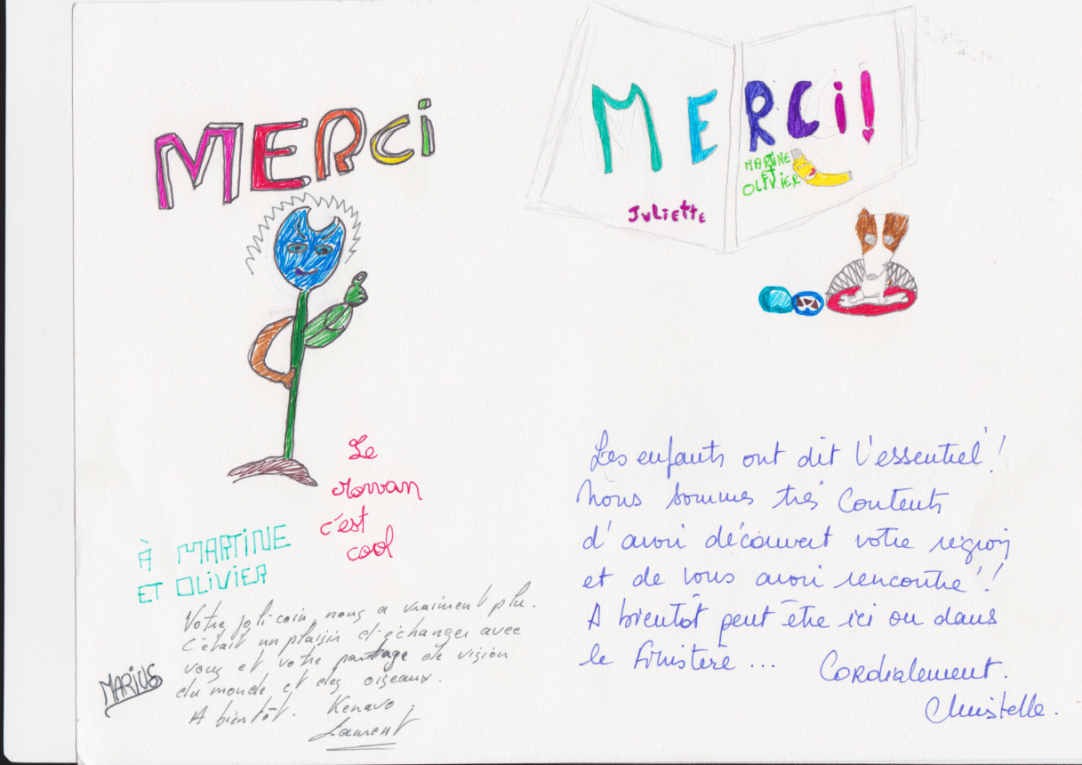 MERCI
Le
Morvan
c'est
cool
À MARTINE
ET OLIVIER
Votre joli coin nous a vraiment plu.
C'était un plaisir d'échanger avec
vous et votre partage de vision
du monde et des oiseaux.
A bientôt. Kenavo,
Laurent
MARIUS
MERCI!
MARTINE
ET
OLIVIER
JULIETTE
Les enfants ont dit l'essentiel !
Nous sommes très contents
d'avoir découvert votre région
et de vous avoir rencontré !
A bientôt peut être ici ou dans
le Finistère ...
Cordialement.
Christelle.